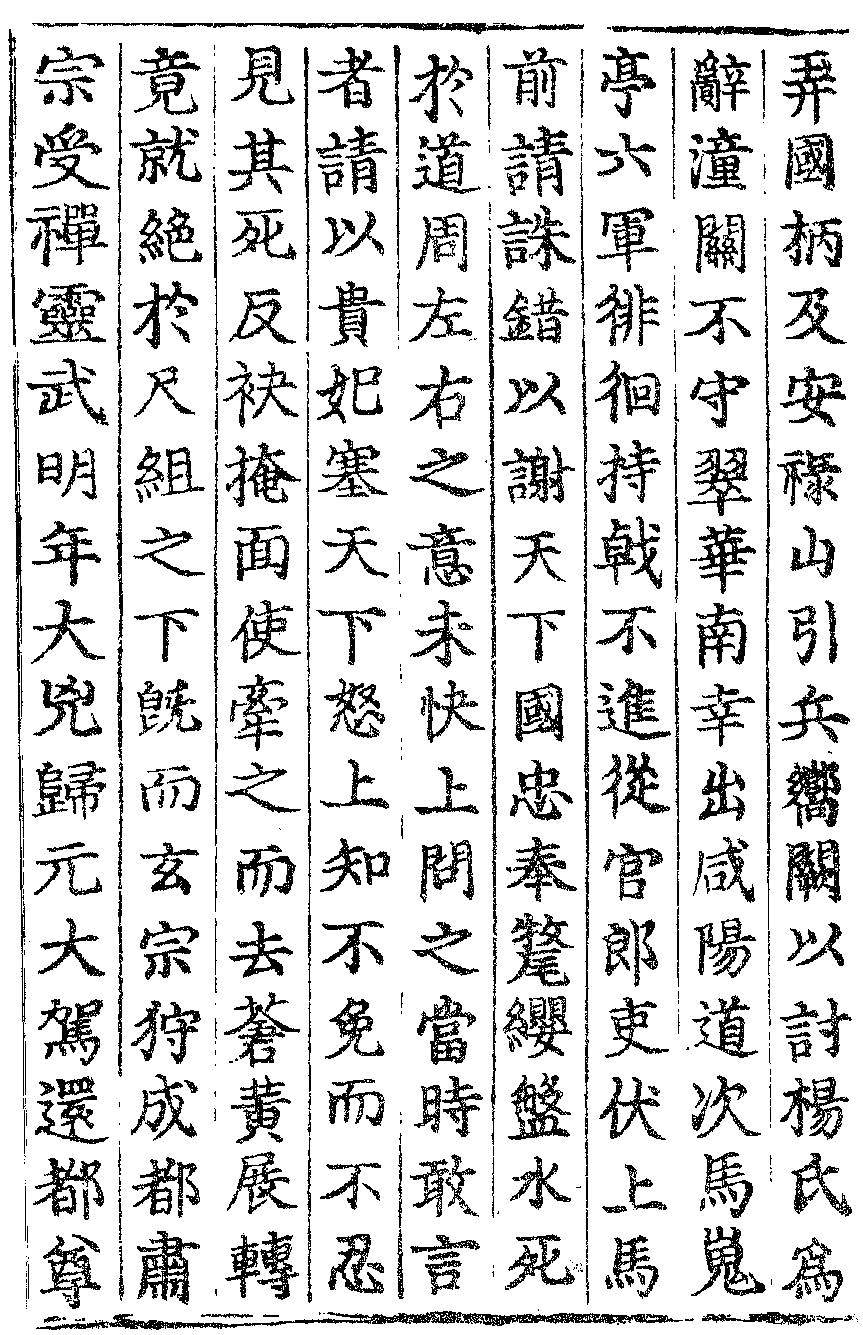 弄國柄及安祿山引兵嚮闕以討楊氏爲
辭潼關不守翠華南幸出咸陽道次馬嵬
亭六軍徘徊持戟不進從官郎吏伏上馬
前請誅錯以謝天下國忠奉氂纓盤水死
於道周左右之意未快上問之當時敢言
者請以貴妃塞天下怒上知不免而不忍
見其死反袂掩面使牽之而去蒼黄展轉
竟就絕於尺組之下旣而玄宗狩成都肅
宗受禪靈武明年大兇歸元大駕還都尊